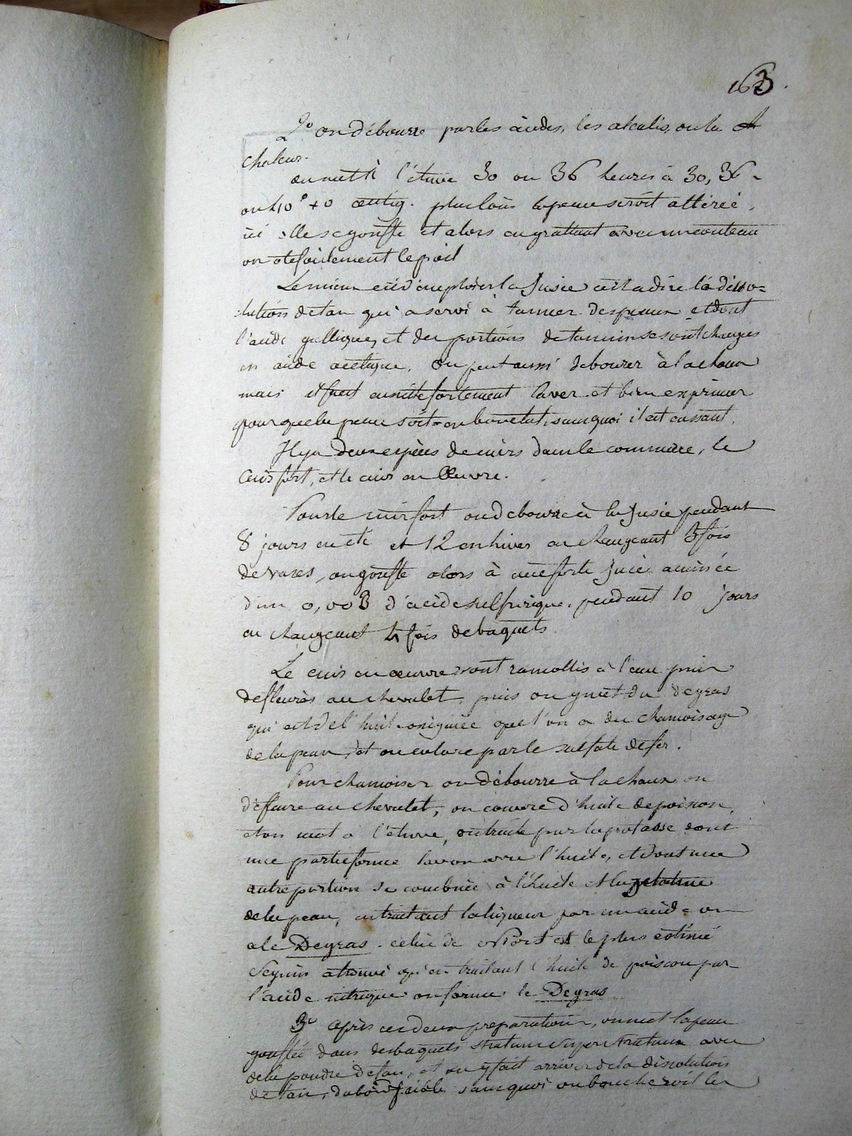 163.
2° on débourre par les acides, les alcalis, ou la
chaleur.
on met à l'étuve 30 ou 36 heures à 30, 36
ou 40° + 0 centig. plus loin la peau seroit altérée,
ici elle se gonfle et alors en grattant avec un couteau
on ote facilement le poil
Le mieux est d'emploier la Jusée c'est a dire la disso=
lution de tan qui a servi à tanner des peaux et dont
l'acide gallique, et des portions de tannin se sont changés
en acide acetique. On peut aussi debourer à la chaux
mais il faut ensuite fortement laver et bien exprimer
pour que la peau soit en bon etat, sans quoi il est cassant.
Il y a deux espèces de cuirs dans le commerce, le
Cuir fort, et le cuir en Œuvre.
Pour le cuir fort on debourre à la Jusée pendant
8 jours en été et 12 en hiver en changeant 3 fois
de vases, on gonfle alors à une forte Jusée animée
d'un 0,003 d'acide sulfurique. pendant 10 jours
en changeant 4 fois de baquets
Le cuir en œuvre sont ramollis à l'eau puis
defleurés au chevalet, puis on y met du degras
qui est de l'huile oxigénée que l'on a du chamoisage
de la peau, et on colore par le sulfate de fer.
Pour chamoiser on débourre à la chaux on
d'effleure au chevalet, on couvre d'huile de poisson,
et on met a l'étuve, on traite par la potasse dont
une partie forme savon avec l'huile, et dont une
autre portion se combine à l'huile et la gelatine
de la peau, en traitant la liqueur par un acide on
a le Degras. celui de Niort est le plus estimé
Seguin a trouvé qu'en traitant l'huile de poisson par
l'acide nitrique on forme le Degras
3° après ces deux preparations, on met la peau
gonflée dans des baquets stratum super stratum avec
de la poudre de tan, et on y fait arriver de la dissolution
de tan, d'abord faible sans quoi on boucheroit les